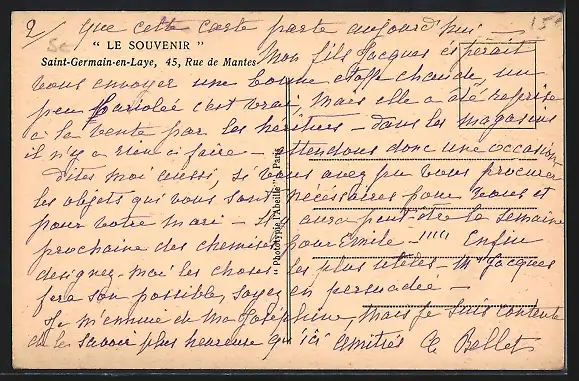 2/ que cette carte parte aujourd'hui — 15
" LE SOUVENIR "
Saint-Germain-en-Laye, 45, Rue de Mantes
Mon fils Jacques espérait
vous envoyer une bonne étoffe chaude, un
peu bariolée c'est vrai, mais elle a été reprise
à la vente par les héritiers — dans les magasins
il n'y a rien à faire — attendons donc une occasion
Dites moi aussi, si vous avez pu vous procurer
les objets qui vous sont nécessaires pour vous et
pour votre mari — il y aura peut-être la semaine
prochaine des chemises pour Emile — !!!! Enfin
désignez-moi les choses les plus utiles — M Jacques
fera son possible, soyez en persuadée —
Je m'ennuie de Ma Joséphine, mais je suis contente
de la savoir plus heureuse qu'ici Amitiés C. Bellet
" Phototypie l'Abeille " — Paris